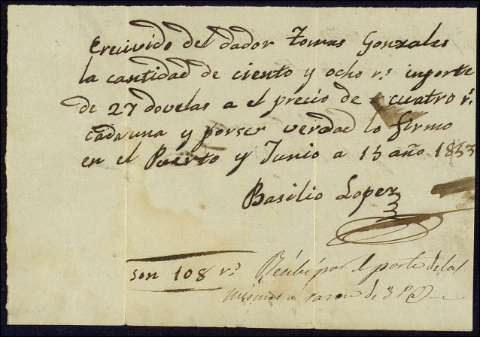 Ereivido del dador Tomas Gonzales
la cantidad de ciento y ocho r.s inporte
de 27 dovelas a el precio de cuatro r.s
cada una y por ser verdad lo firmo
en el Puerto y Junio a 15 año 1853
Basilio Lopez
son 108 r.s Recibi por el porte de las
mismas a razon de 3